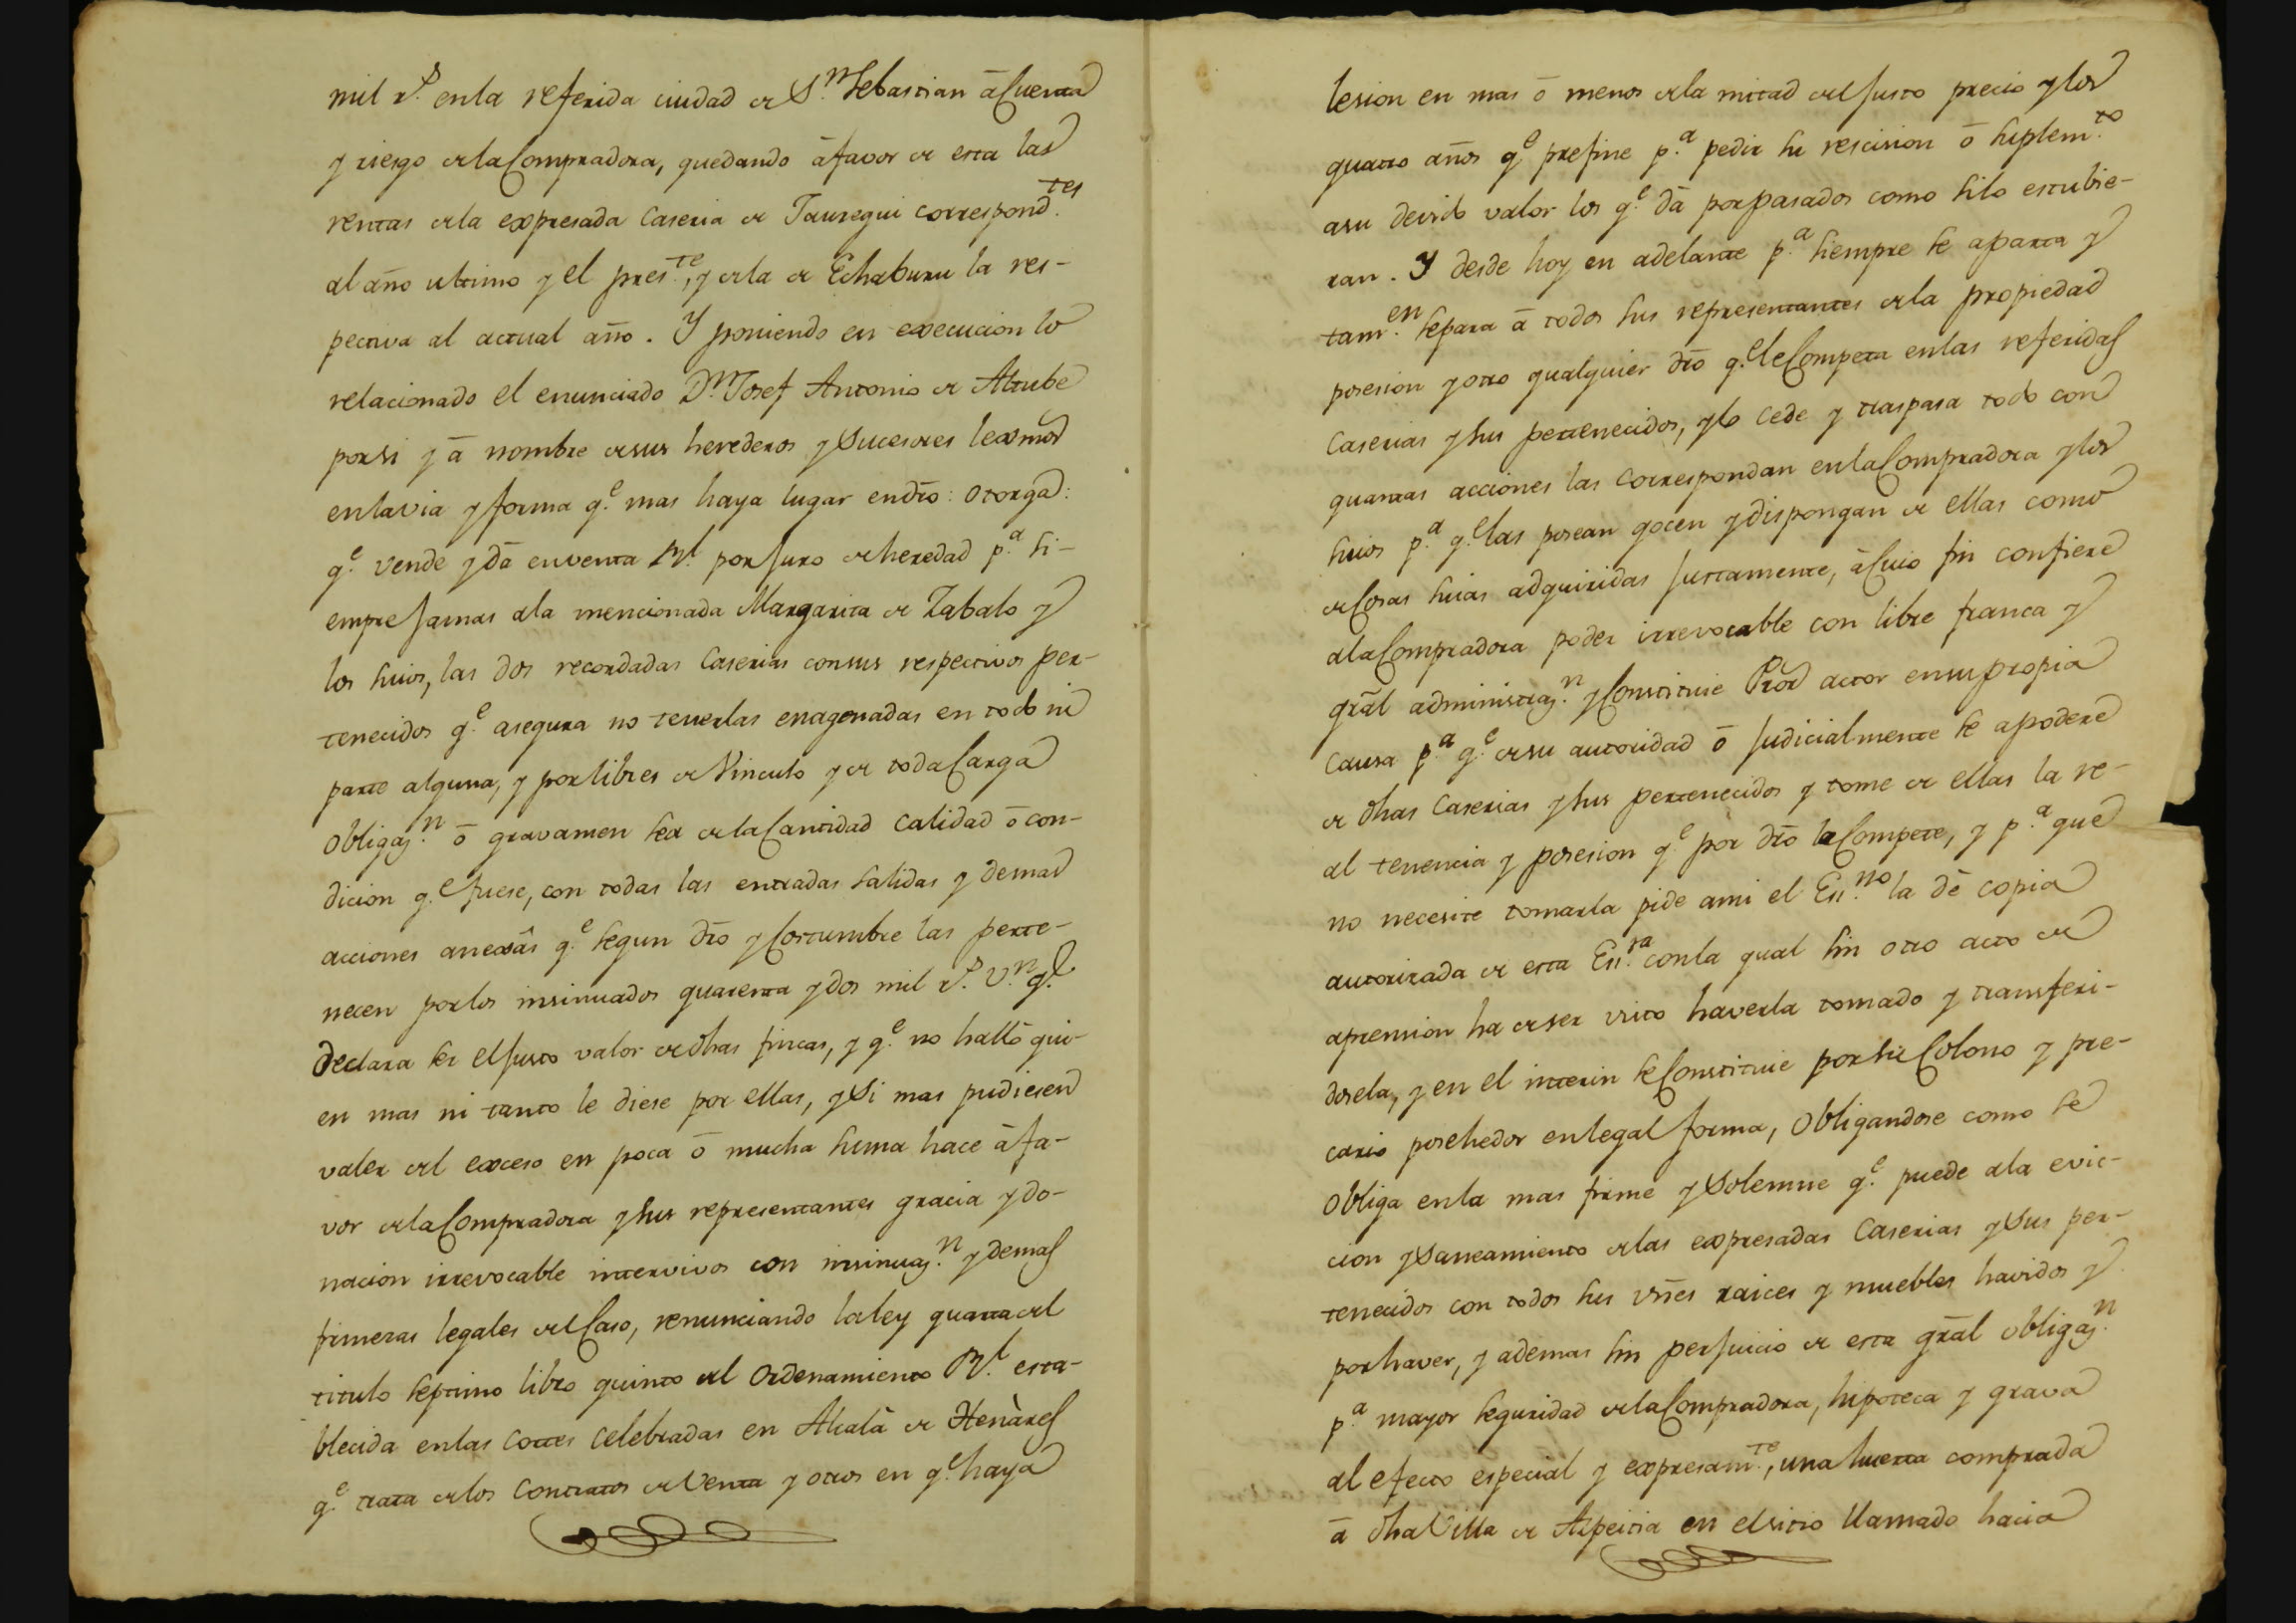 mil r.s en la referida ciudad de S.n Sebastian á Cuenta
y riesgo de la Compradora, quedando á favor de esta las
rentas de la expresada Caseria de Jauregui correspond.tes
al año ultimo y el pres.te, y de la de Echaburu la res-
pectiva al actual año. Y poniendo en execucion lo
relacionado el enunciado D.n Josef Antonio de Altube
por si y á nombre de sus herederos y Sucesores lexmos
en la via y forma q.e mas haya lugar en dro: otorga:
q.e vende y dá en venta R.l por Juro de heredad p.a si-
empre Jamas a la mencionada Margarita de Zabalo y
los suios, las dos recordadas Caserias con sus respectivos per-
tenecidos q.e asegura no tenerlas enagenadas en todo ni
parte alguna, y por libres de Vinculo y de toda Carga
obligaz.n ó gravamen sea de la Cantidad Calidad ó con-
dicion q.e fuese, con todas las entradas salidas y demas
acciones anexâs q.e segun dro y Costumbre las perte-
necen por los insinuados quarenta y dos mil r.s v.n q.e
declara ser el Justo valor de dhas fincas, y q.e no halló qui-
en mas ni tanto le diese por ellas, y Si mas pudiesen
valer del exceso en poca ó mucha suma hace á fa-
vor de la Compradora y sus representantes gracia y do-
nacion irrevocable intervivos con insinuaz.n y demas
firmezas legales del Caso, renunciando la ley quarta del
titulo septimo libro quinto del Ordenamiento R.l esta-
blecida en las Cortes Celebradas en Alcalá de Henàres
q.e trata de los Contratos de Venta y otros en q.e haya
lesion en mas ó menos de la mitad del Justo precio y los
quatro años q.e prefine p.a pedir su rescision ó suplem.to
a su devido valor los q.e dá por pasados como si lo estubie-
ran. Y desde hoy en adelante p.a siempre se aparta y
tam.en separa á todos sus representantes de la propiedad
posesion y otro qualquier dro q.e le Competa en las referidas
Caserias y sus pertenecidos, y lo Cede y traspasa todo con
quantas acciones las Correspondan en la Compradora y los
suios p.a q.e las posean gocen y dispongan de ellas como
de Cosas suias adquiridas Justamente, á Cuio fin confiere
a la Compradora poder irrevocable con libre franca y
gral administraz.n y Constituie Pror actor en su propia
Causa p.a q.e de su autoridad ó Judicialmente se apodere
de dhas Caserias y sus pertenecidos y tome de ellas la re-
al tenencia y posesion q.e por dro la Compete, y p.a que
no necesite tomarla pide a mi el Ess.no la dé copia
autorizada de esta Ess.ra con la qual sin otro acto de
aprension ha de ser visto haverla tomado y transferi-
dosela, y en el interin se Constituie por su Colono y pre-
cario posehedor en legal forma, obligandose como se
obliga en la mas firme y Solemne q.e puede a la evic-
cion y Saneamiento de las expresadas Caserias y Sus per-
tenecidos con todos sus vnes raices y muebles havidos y
por haver, y ademas sin perjuicio de esta gral obligaz.n
p.a mayor seguridad de la Compradora, hipoteca y grava
al efecto especial y expresam.te, una huerta comprada
á dha Villa de Azpeitia en el sitio llamado hacia